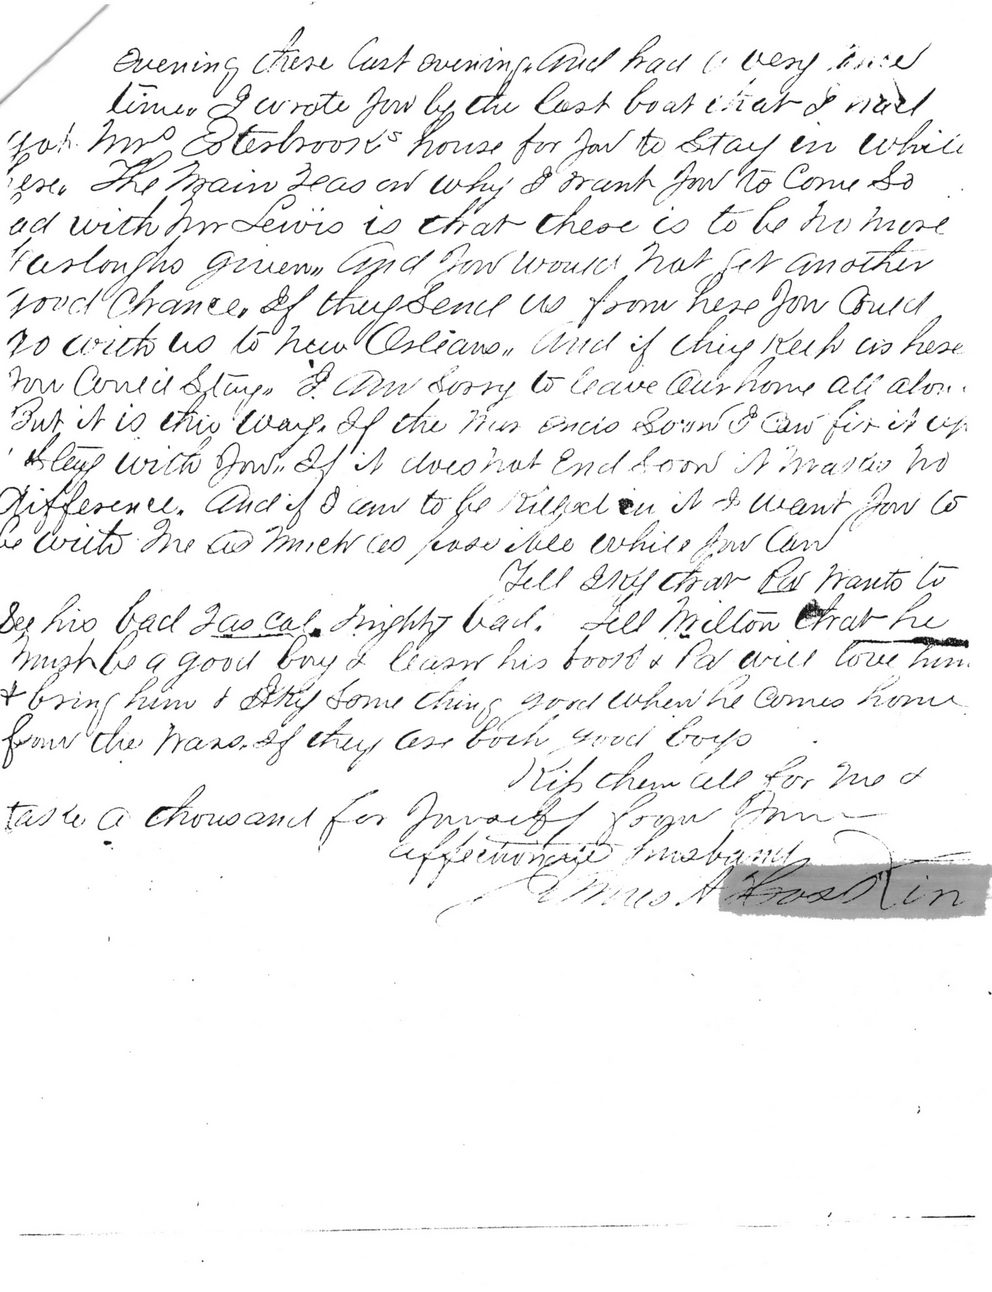 evening there last evening. And had a very nice
time. I wrote you by the last boat that I had
got Mrs Esterbrook's house for you to stay in while
here. The main reason why I want you to come so
ad with Mr Lewis is that there is to be no more
furloughs given. And you would not get another
good chance. If they send us from here you could
go with us to New Orleans. And if they keep us here
you could stay. I am sorry to leave our home all alone
But it is this way. If the war ends soon I can fix it up
& stay with you. If it does not end soon it makes no
difference. And if I am to be killed in it I want you to
be with me as much as possible while you can
Tell Iky that Pa wants to
see his bad rascal mighty bad. Tell Milton that he
must be a good boy & learn his book & Pa will love him
& bring him & Iky some thing good when he comes home
from the wars. If they are both good boys
Kiss them all for me &
take a thousand for yourself from your
affectionate husband
James A Hoskin